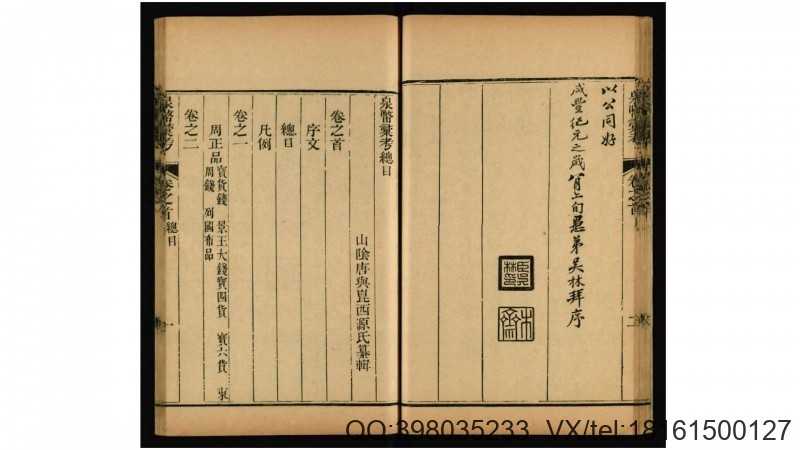 以公同好
咸豐紀元之歲八月上旬愚弟吳林拜序
臣吳林印
木齋
泉幣彙考總目
山陰唐與崑西源氏纂輯
卷之首
序文
總目
凡例
卷之一
周正品 寶貨錢 景王大錢寶四貨 寶六貨 東
周錢 列國布品
卷之二
泉幣彙考 卷之首總目 一
QQ:398035233 VX/tel:18161500127